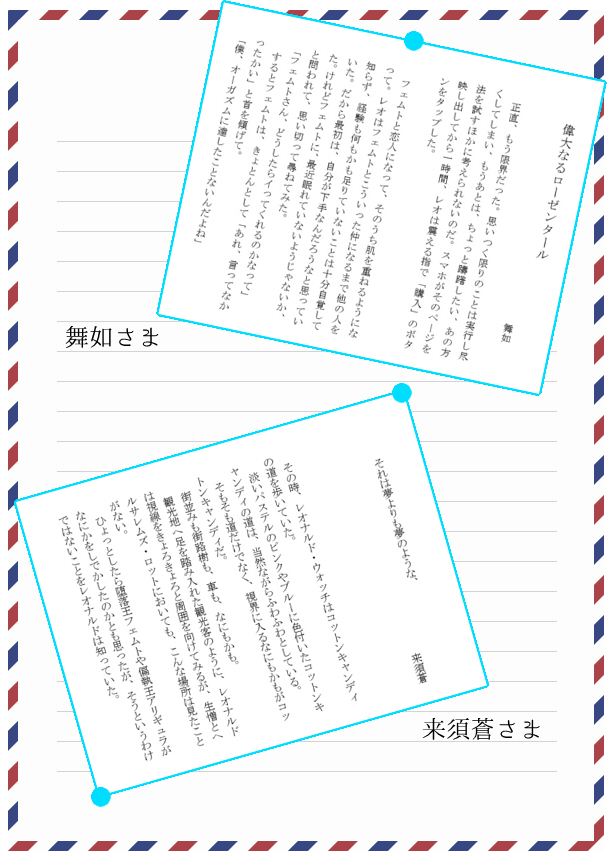 偉大なるローゼンタール
舞如
正直、もう限界だった。思いつく限りのことは実行し尽
くしてしまい、もうあとは、ちょっと躊躇したい、あの方
法を試すほかに考えられないのだ。スマホがそのページを
映し出してから一時間、レオは震える指で「購入」のボタ
ンをタップした。
フェムトと恋人になって、そのうち肌を重ねるようにな
って。レオはフェムトとこういった仲になるまで他の人を
知らず、経験も何もかも足りていないことは十分自覚して
いた。だから最初は、自分が下手なんだろうなと思ってい
た。けれどフェムトに、最近眠れていないようじゃないか、
と問われて、思い切って尋ねてみた。
「フェムトさん、どうしたらイってくれるのかなって」
するとフェムトは、きょとんとして「あれ、言ってなか
ったかい」と首を傾げて。
「僕、オーガズムに達したことないんだよね」
舞如さま
それは夢よりも夢のような、
来須蒼
その時、レオナルド・ウォッチはコットンキャンディ
の道を歩いていた。
淡いパステルのピンクやブルーに色付いたコットンキ
ャンディの道は、当然ながらふわふわとしている。
そもそも道だけでなく、視界に入るなにもかもがコッ
トンキャンディだ。
街並みも街路樹も、車も、なにもかも。
観光地へ足を踏み入れた観光客のように、レオナルド
は視線をきょろきょろと周囲を向けてみるが、生憎とヘ
ルサレムズ・ロットにおいても、こんな場所は見たこと
がない。
ひょっとしたら堕落王フェムトや偏執王アリギュラが
なにかをしでかしたのかとも思ったが、そうというわけ
ではないことをレオナルドは知っていた。
来須蒼さま